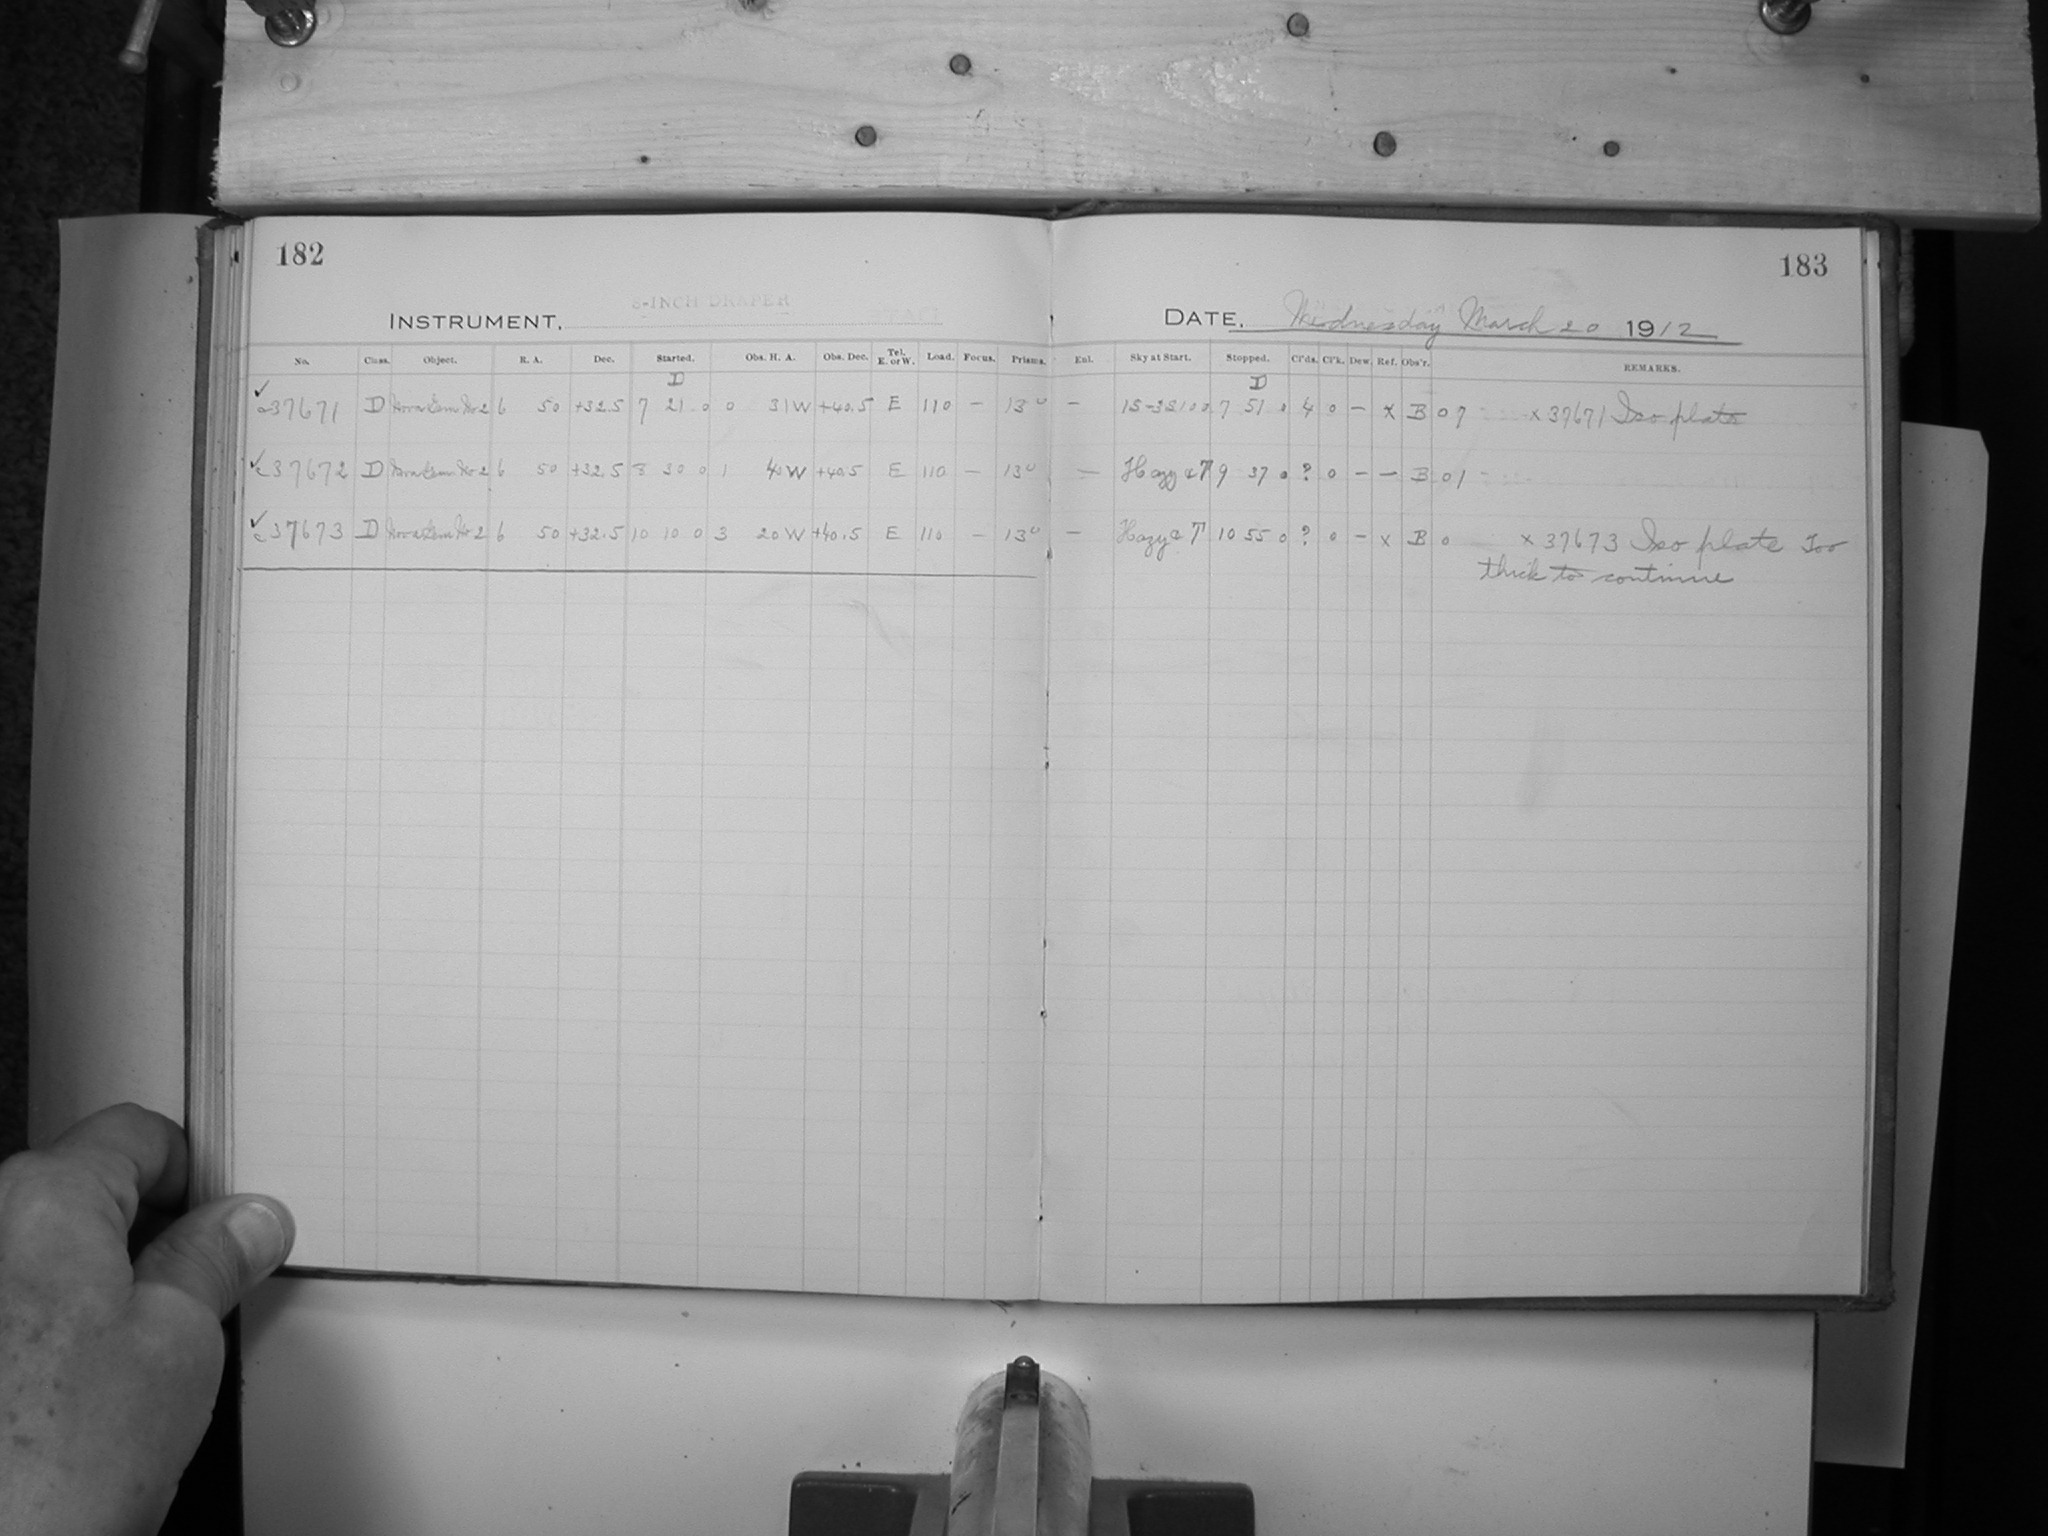 182
183
INSTRUMENT, 8-INCH DRAPER
DATE, Wednesday March 20 1912
No. Class. Object. R. A. Dec. Started. Obs. H. A. Obs. Dec. Tel. E. or W. Load. Focus. Prisms. Enl. Sky at Start. Stopped. Cl'ds. Cl'k. Dew. Ref. Obs'r. REMARKS.
D D
✓ c37671 D Nova Gem No 2 6 50 +32.5 7 21 0 0 31 W +40.5 E 110 – 13° – 7 51 0 4 0 – x B 07 x 37671 Iso plate
✓ c37672 D Nova Gem No 2 6 50 +32.5 8 30 0 1 40 W +40.5 E 110 – 13° – Hazy & T 9 37 0 ? 0 – – B 01
✓ c37673 D Nova Gem No 2 6 50 +32.5 10 10 0 3 20 W +40.5 E 110 – 13° – Hazy & T 10 55 0 ? 0 – x B 0 x 37673 Iso plate Too
thick to continue